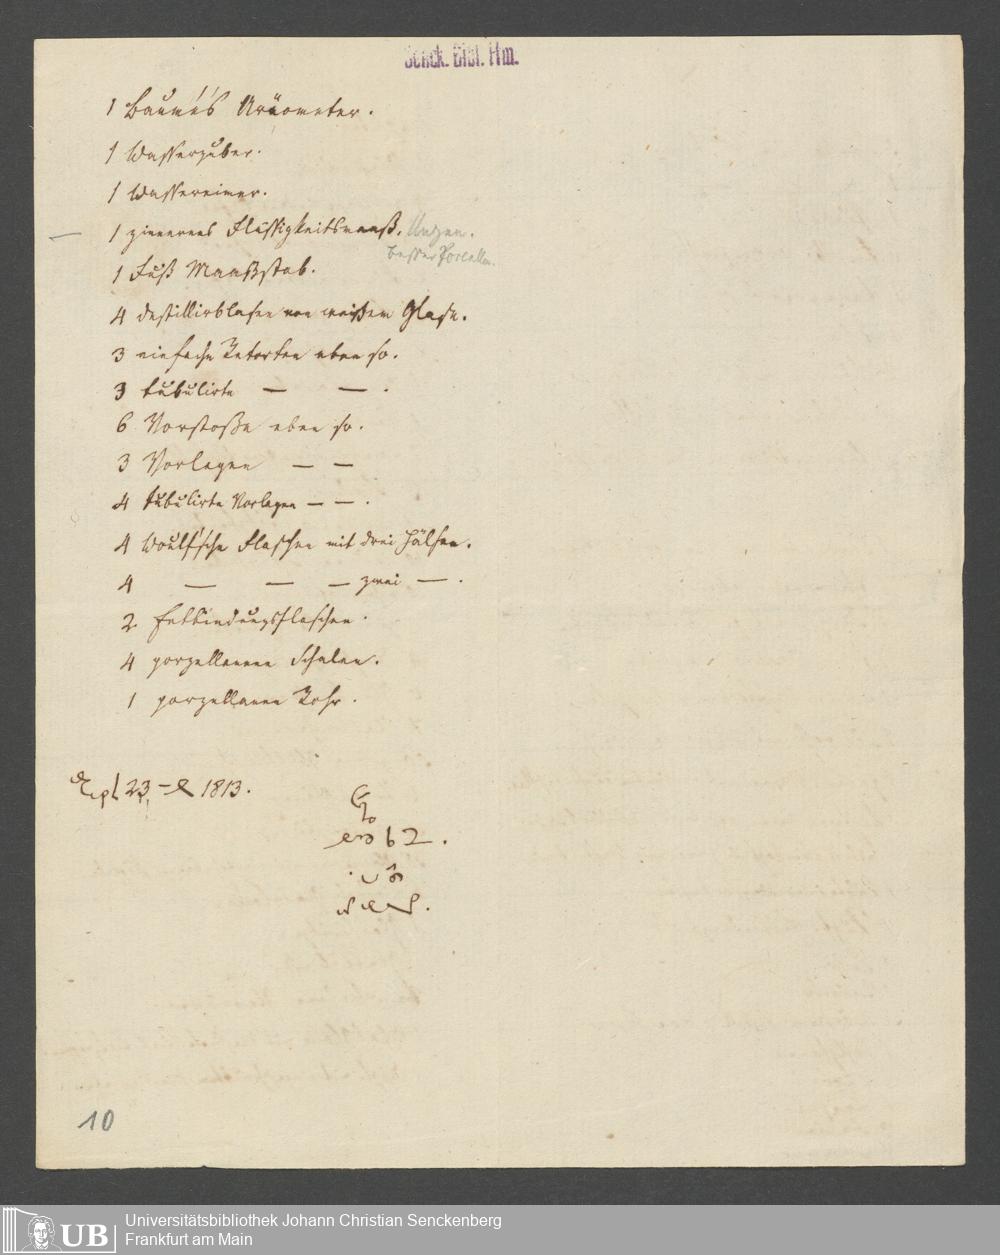 Senck. Bibl. Ffm.
1 Baumé's Aräometer.
1 Wasserzuber.
1 Wassereimer.
1 zinnernes Flüssigkeitsmaaß. Unzen.
besser Porcellan.
1 Fuß Maaßstab.
4 Destillirblasen von weißem Glase.
3 einfache Retorten eben so.
3 tubulirte — — .
6 Vorstoße eben so.
3 Vorlagen — —
4 tubulirte Vorlagen — — .
4 Woulf'sche Flaschen mit drei Hälsen.
4 — — — zwei — .
2 Entbindungsflaschen.
4 porzellanene Schalen.
1 porzellanen Rohr.
23 1813.
10
UB
Universitätsbibliothek Johann Christian Senckenberg
Frankfurt am Main